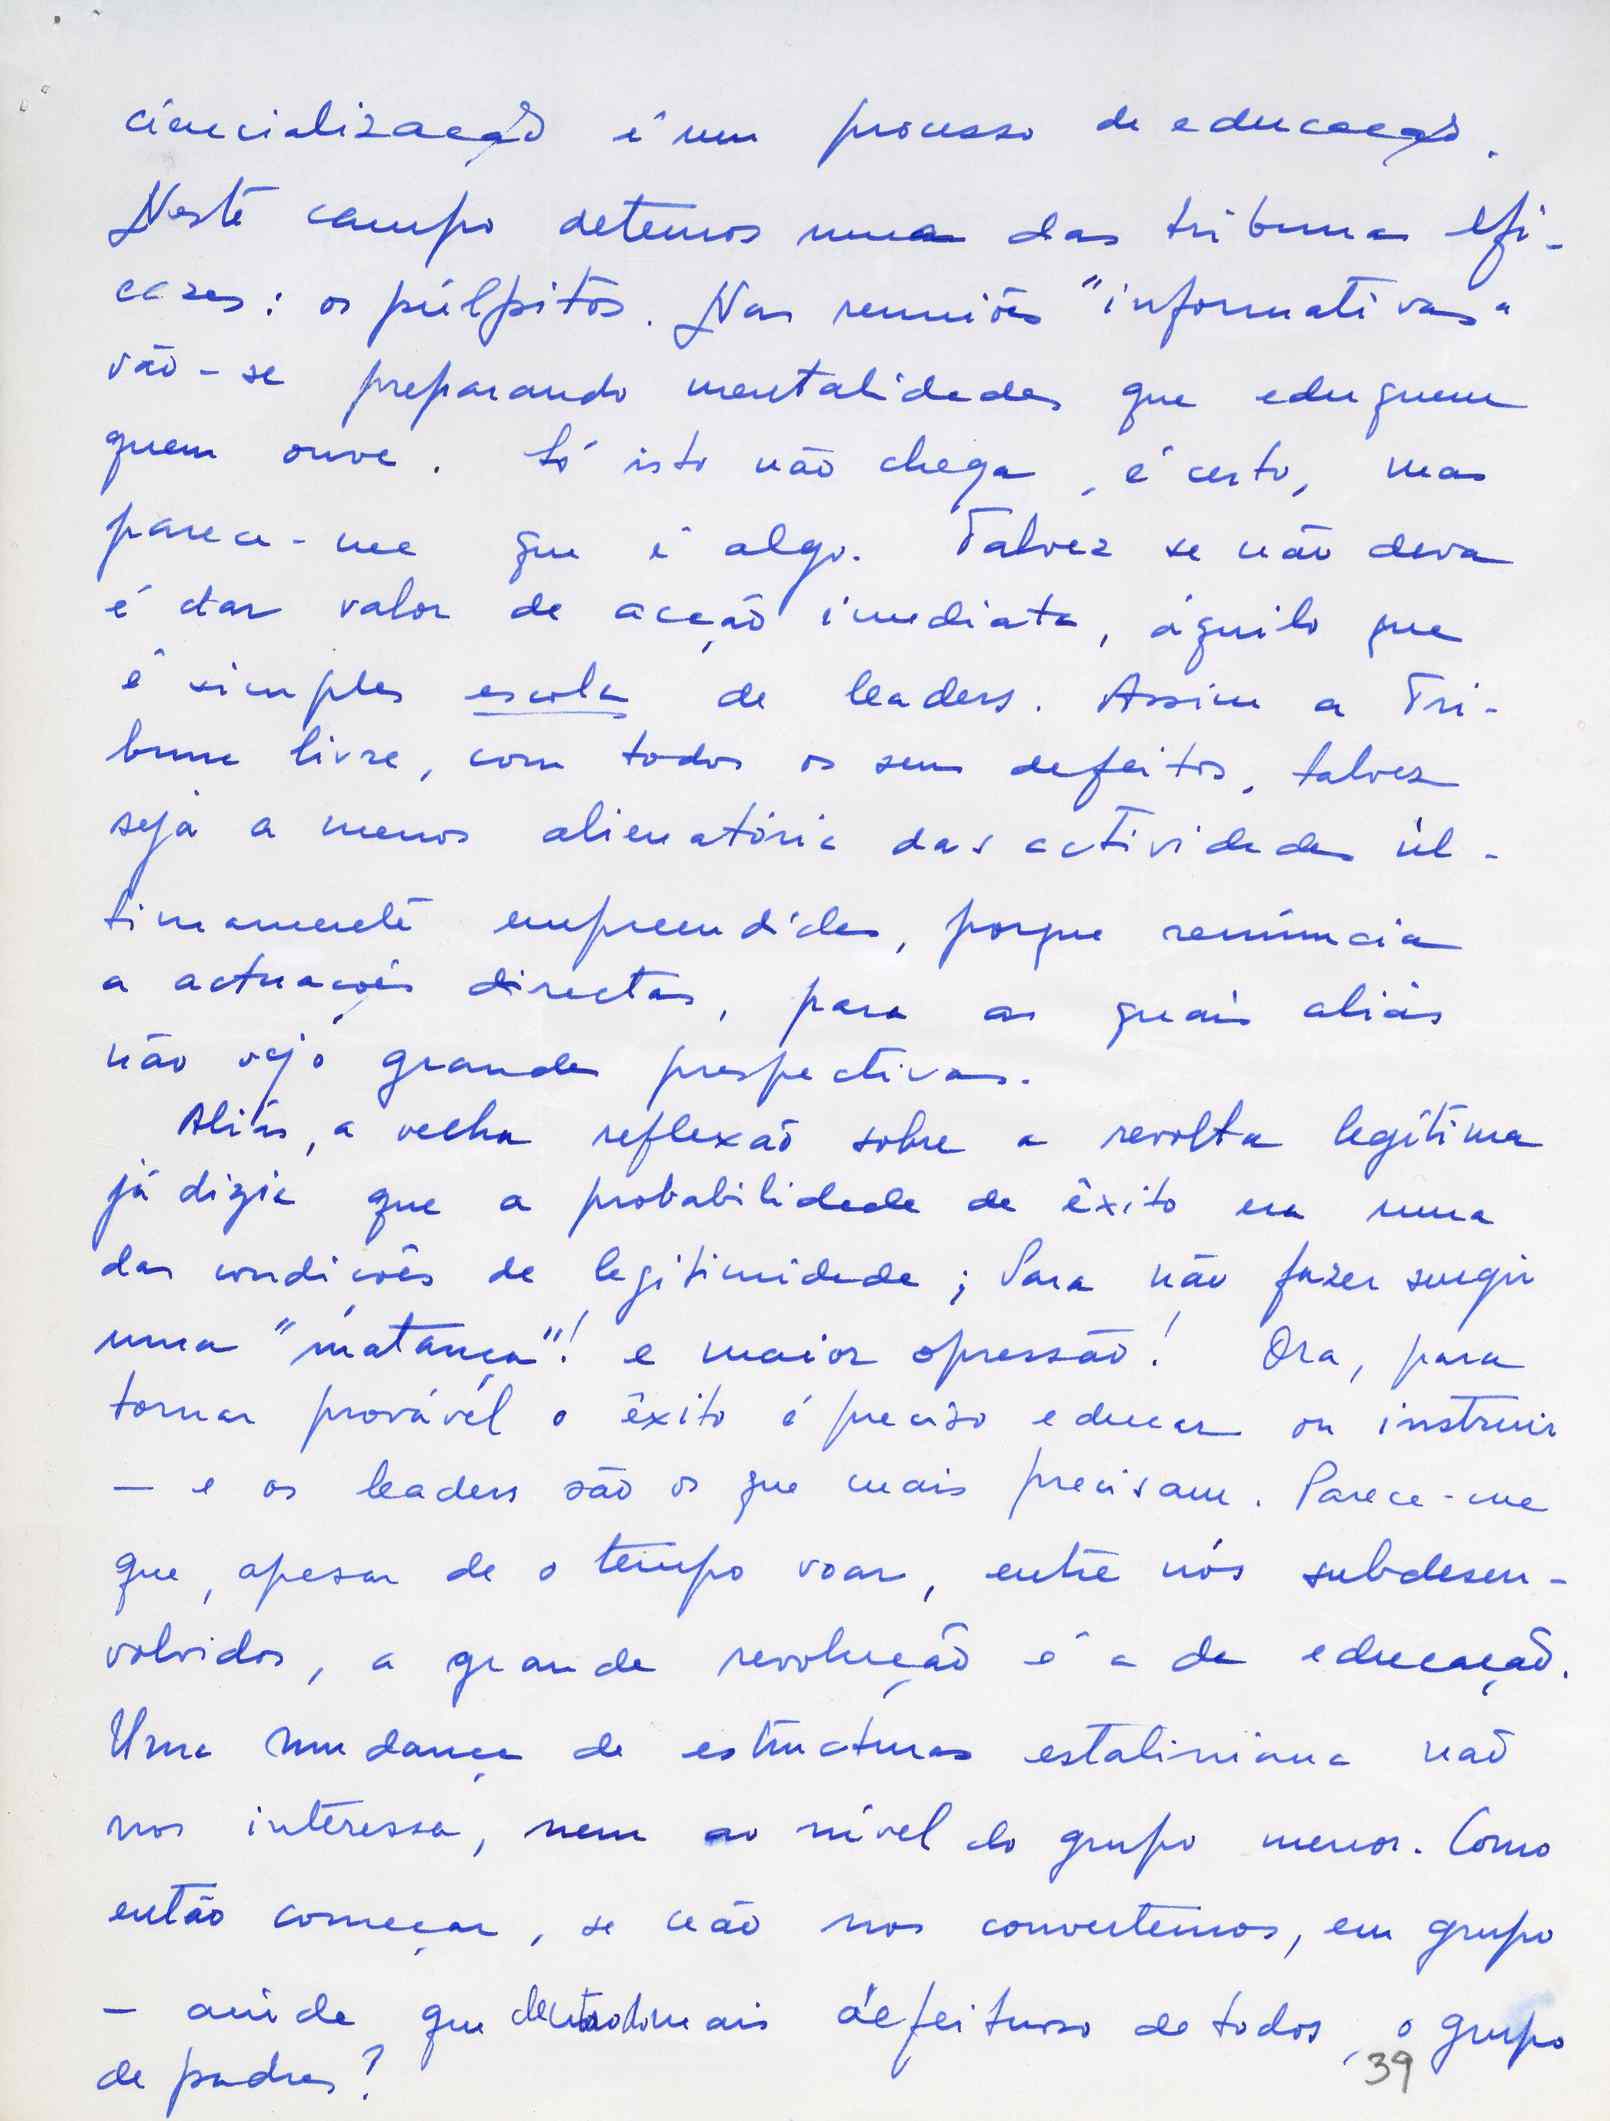 ciencialização é um processo de educação.
Neste campo detemos uma das tribunas efi-
cazes: os púlpitos. Nas reuniões "informativas"
vão-se preparando mentalidades que eduquem
quem ouve. Só isto não chega, é certo, mas
parece-me que é algo. Talvez se não deva
é dar valor de acção imediata, àquilo que
é simples escola de leaders. Assim a Tri-
buna livre, com todos os seus defeitos, talvez
seja a menos alienatória das actividades úl-
timamente empreendidas, porque renúncia
a actuações directas, para as quais aliás
não vejo grandes prespectivas.
Aliás, a velha reflexão sobre a revolta legítima
já dizia que a probabilidade de êxito era uma
das condições de legitimidade; Para não fazer surgir
uma "matança"! e maior opressão! Ora, para
tornar provável o êxito é preciso educar ou instruir
— e os leaders são os que mais precisam. Parece-me
que, apesar de o tempo voar, entre nós subdesen-
volvidos, a grande revolução é a da educação.
Uma mudança de estructuras estaliniana não
nos interessa, nem ao nível do grupo menor. Como
então começar, se não nos convertemos, em grupo
— ainda que dentro do mais defeituoso de todos, o grupo
de padres?
39